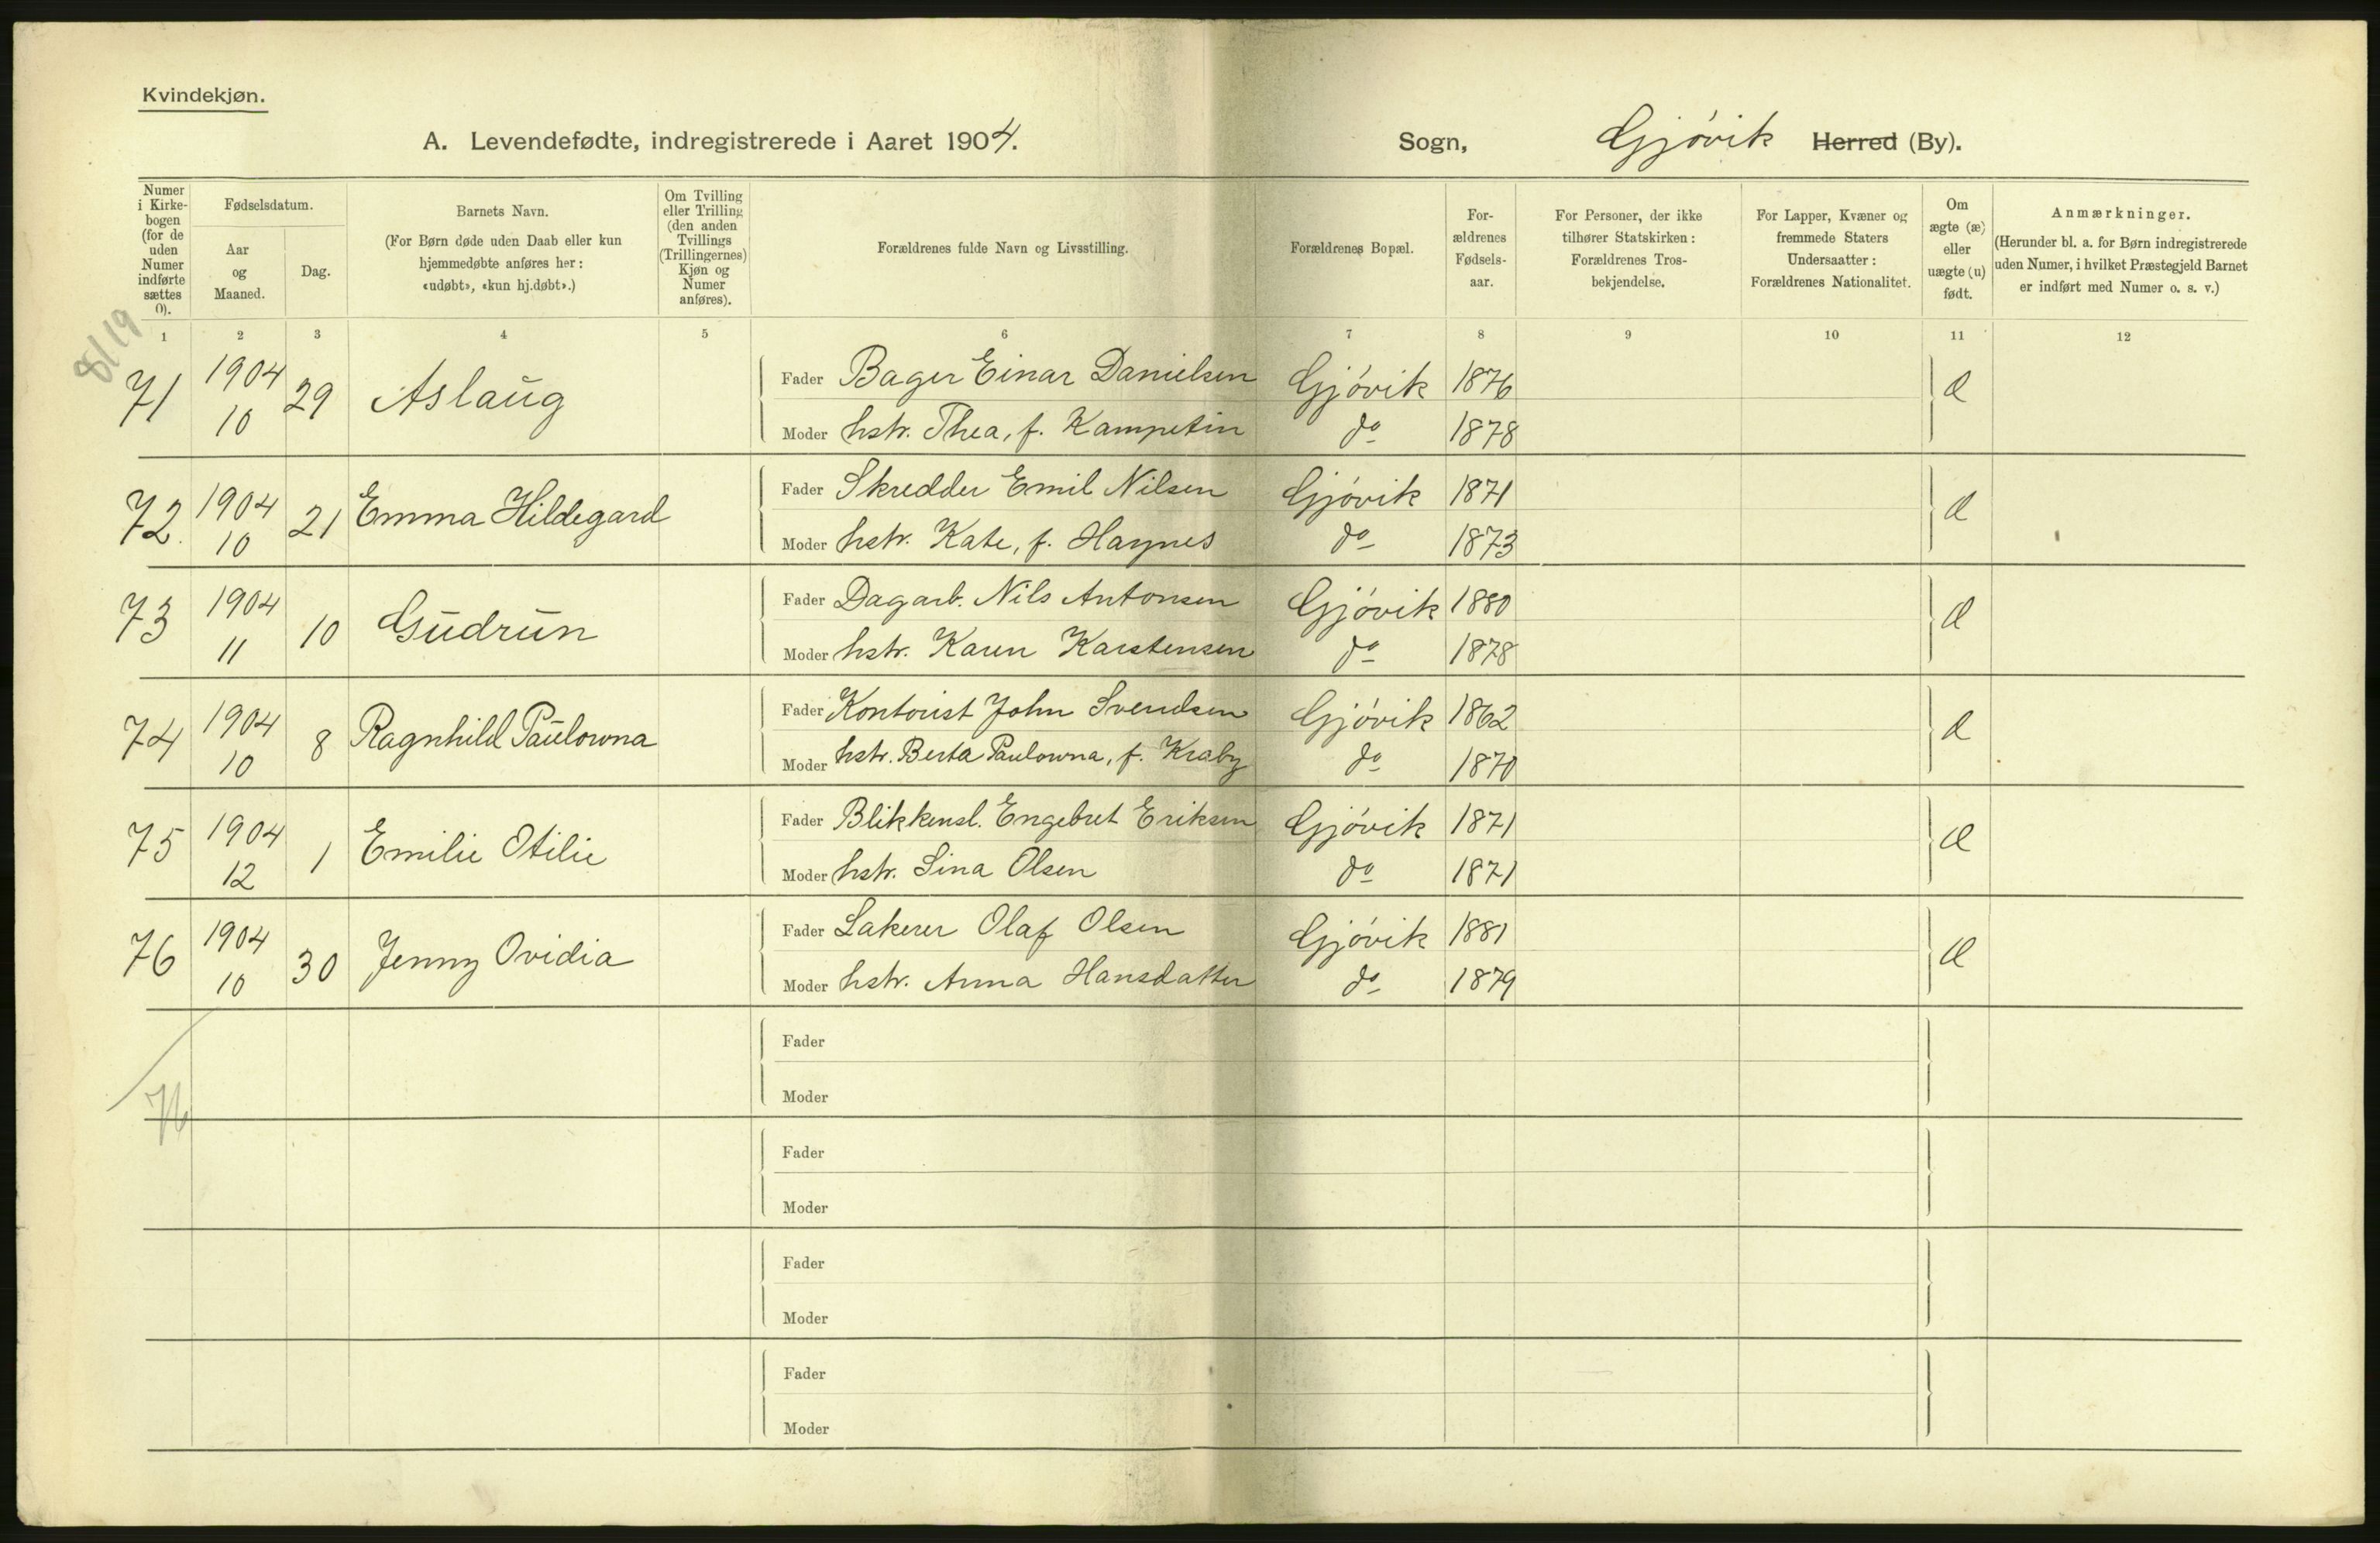 Kvindekjøn.
A. Levendefødte, indregistrerede i Aaret 1904.
Sogn, Gjövik Herred (By).
Numer i Kirke-bogen (for de uden Numer indførte sættes 0).
Fødselsdatum.
Aar og Maaned.
Dag.
Barnets Navn.
(For Børn døde uden Daab eller kun hjemmedøbte anføres her: «udøbt», «kun hj.døbt».)
Om Tvilling eller Trilling (den anden Tvillings (Trillingernes) Kjøn og Numer anføres).
Forældrenes fulde Navn og Livsstilling.
Forældrenes Bopæl.
For-ældrenes Fødsels-aar.
For Personer, der ikke tilhører Statskirken: Forældrenes Tros-bekjendelse.
For Lapper, Kvæner og fremmede Staters Undersaatter: Forældrenes Nationalitet.
Om ægte (æ) eller uægte (u) født.
Anmærkninger.
(Herunder bl. a. for Børn indregistrerede uden Numer, i hvilket Præstegjeld Barnet er indført med Numer o. s. v.)
1 2 3 4 5 6 7 8 9 10 11 12
8/19
71 1904 10 29 Aslaug Fader Bager Einar Danielsen Gjövik 1876 æ
Moder hstr. Thea, f. Kampetin do 1878
72. 1904 10 21 Emma Hildegard Fader Skredder Emil Nilsen Gjövik 1871 æ
Moder hstr. Kate, f. Haynes do 1873
73 1904 11 10 Gudrun Fader Dagarb. Nils Antonsen Gjövik 1880 æ
Moder hstr. Karen Karstensen do 1878
74 1904 10 8 Ragnhild Paulowna Fader Kontorist John Svendsen Gjövik 1862 æ
Moder hstr. Berta Paulowna, f. Kraby do 1870
75 1904 12 1 Emilie Otilie Fader Blikkensl. Engebret Eriksen Gjövik 1871 æ
Moder hstr. Lina Olsen do 1871
76 1904 10 30 Jenny Ovidia Fader Lakerer Olaf Olsen Gjövik 1881 æ
Moder hstr. Anna Hansdatter do 1879
Fader
Moder
76
Fader
Moder
Fader
Moder
Fader
Moder